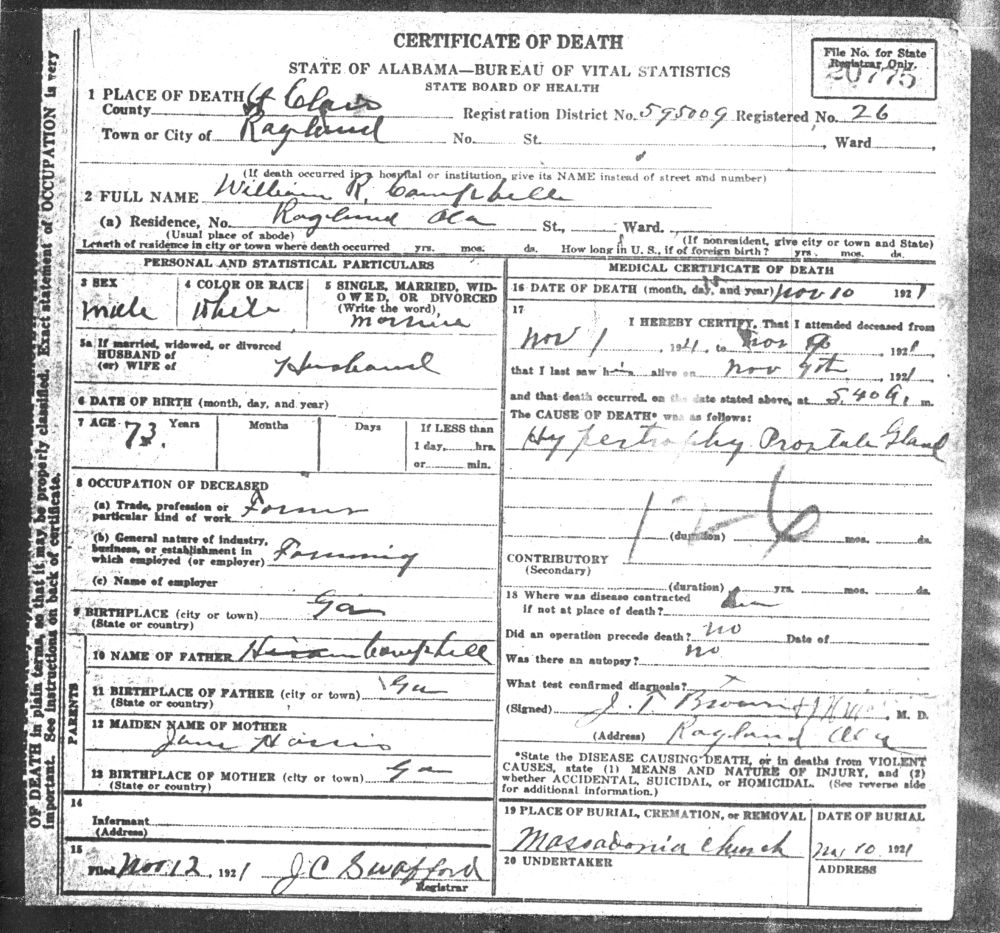 CERTIFICATE OF DEATH
STATE OF ALABAMA—BUREAU OF VITAL STATISTICS
STATE BOARD OF HEALTH
File No. for State
Registrar Only.
20775
1 PLACE OF DEATH
County St Clair
Registration District No. 595009 Registered No. 26
Town or City of Ragland No. St. , Ward
(If death occurred in a hospital or institution, give its NAME instead of street and number)
2 FULL NAME William R. Campbell
(a) Residence, No. Ragland Ala St., Ward.
(Usual place of abode) (If nonresident, give city or town and State)
Length of residence in city or town where death occurred yrs. mos. ds. How long in U. S., if of foreign birth? yrs. mos. ds.
PERSONAL AND STATISTICAL PARTICULARS
3 SEX
male
4 COLOR OR RACE
White
5 SINGLE, MARRIED, WID-
OWED, OR DIVORCED
(Write the word),
5a If married, widowed, or divorced
HUSBAND of
(or) WIFE of
Husband
6 DATE OF BIRTH (month, day, and year)
7 AGE 73 Years Months Days If LESS than
1 day, hrs.
or min.
8 OCCUPATION OF DECEASED
(a) Trade, profession or
particular kind of work Farmer
(b) General nature of industry,
business, or establishment in
which employed (or employer) Farming
(c) Name of employer
9 BIRTHPLACE (city or town) Ga
(State or country)
PARENTS
10 NAME OF FATHER Campbell
11 BIRTHPLACE OF FATHER (city or town) Ga
(State or country)
12 MAIDEN NAME OF MOTHER
Jane Harris
13 BIRTHPLACE OF MOTHER (city or town) Ga
(State or country)
14
Informant
(Address)
15
Filed Nov 12, 1921 J C Swafford
Registrar
MEDICAL CERTIFICATE OF DEATH
16 DATE OF DEATH (month, day, and year) Nov 10 1921
17
I HEREBY CERTIFY, That I attended deceased from
Nov 1, 1921, to Nov , 1921
that I last saw him alive on Nov 9th, 1921
and that death occurred, on the date stated above, at 5.40 A. m.
The CAUSE OF DEATH* was as follows:
Hypertrophy Prostate Gland
(duration) mos. ds.
CONTRIBUTORY
(Secondary)
(duration) yrs. mos. ds.
18 Where was disease contracted
if not at place of death?
Did an operation precede death? no Date of
Was there an autopsy? no
What test confirmed diagnosis?
(Signed) J. T. Brown , M. D.
(Address) Ragland Ala
*State the DISEASE CAUSING DEATH, or in deaths from VIOLENT
CAUSES, state (1) MEANS AND NATURE OF INJURY, and (2)
whether ACCIDENTAL, SUICIDAL, or HOMICIDAL. (See reverse side
for additional information.)
19 PLACE OF BURIAL, CREMATION, or REMOVAL
Massadonia Church
DATE OF BURIAL
Nov 10 1921
20 UNDERTAKER
ADDRESS
OF DEATH in plain terms, so that it may be properly classified. Exact statement of OCCUPATION is very
important. See instructions on back of certificate.